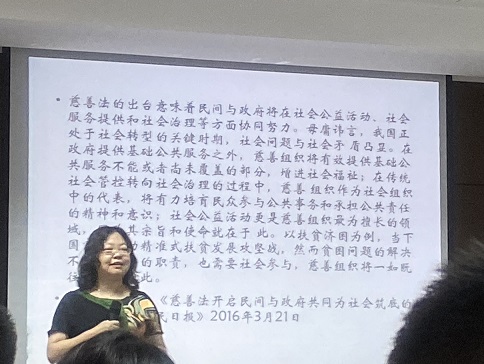 • 慈善法的出台意味着民间与政府将在社会公益活动、社会
服务提供和社会治理等方面协同努力。毋庸讳言，我国正
处于社会转型的关键时期，社会问题与社会矛盾凸显。在
政府提供基础公共服务之外，慈善组织将有效提供基础公
共服务不能或者尚未覆盖的部分，增进社会福祉；在传统
社会管控转向社会治理的过程中，慈善组织作为社会组织
中的代表，将有力培育民众参与公共事务和承担公共责任
的精神和意识；社会公益活动更是慈善组织最为擅长的领
域，其宗旨和使命就在于此。以扶贫济困为例，当下
国 精准式扶贫发展攻坚战，然而贫困问题的解决
不 的职责，也需要社会参与，慈善组织将一如既
往 此。
• 《慈善法开启民间与政府共同为社会筑底的
民日报》2016年3月21日